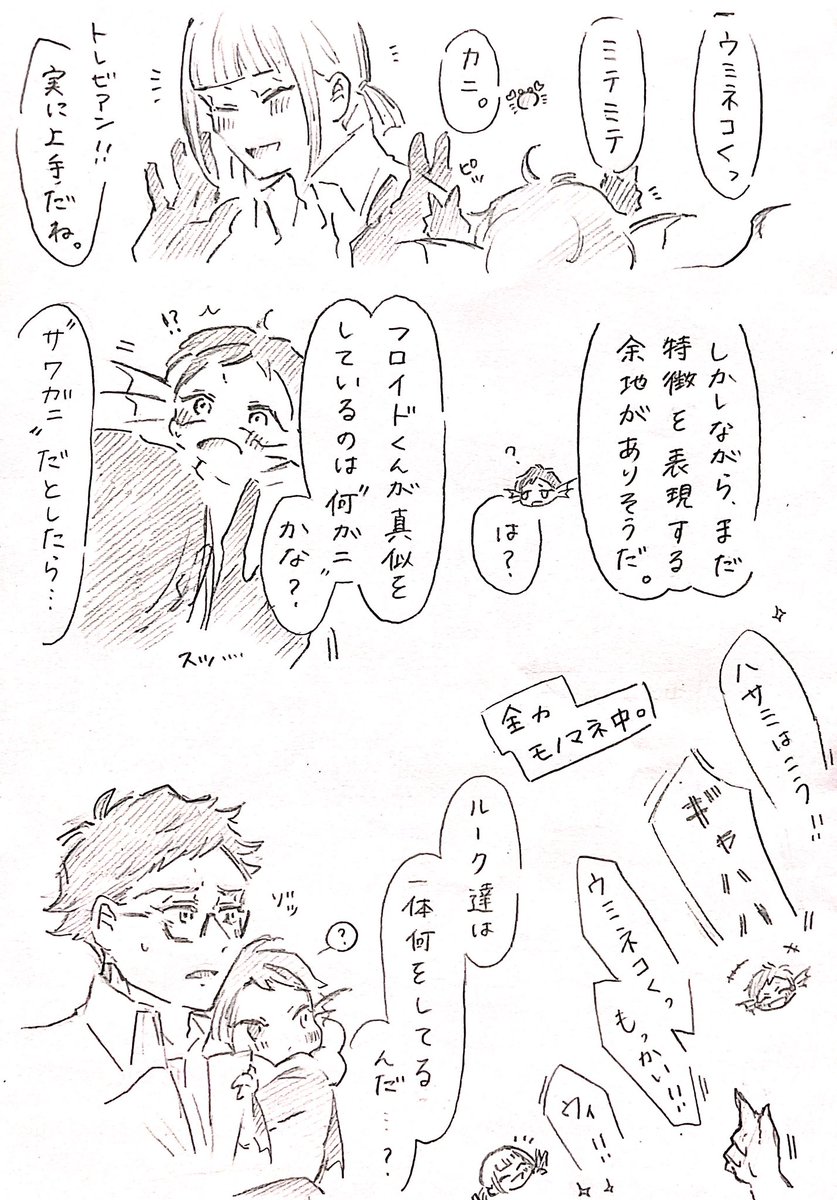 ウミネコくっ
ミテミテ
カニ。
ピッ
トレビアン!!
実に上手だね。
しかしながら、まだ
特徴を表現する
余地がありそうだ。
?
は?
フロイドくんが真似を
しているのは何"がニ"
かな?
!?
"ザワガニ"だとしたら…
スッ……
ハサミはこう!!
ギャハハ
全力
モノマネ中。
ウミネコくっ
もっかい!!
ルーク達は
一体何をしてる
んだ…?
ゾッ
?